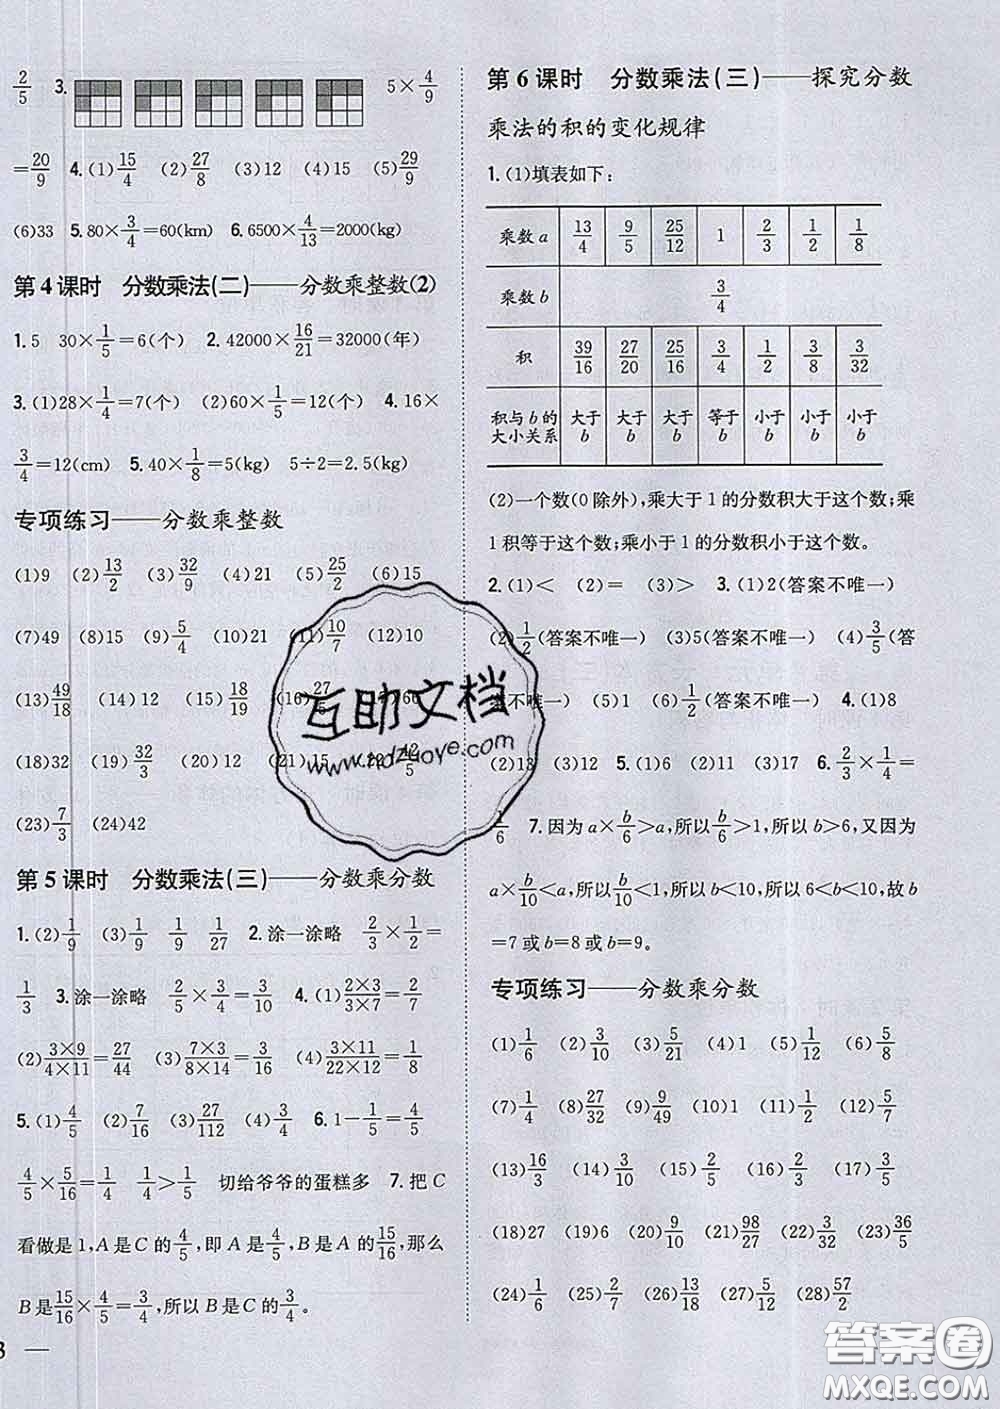 2/5 3. 5×4/9
=20/9 4.(1)15/4 (2)27/8 (3)12 (4)15 (5)29/9
(6)33 5.80×3/4=60(km) 6.6500×4/13=2000(kg)
第4课时 分数乘法(二)——分数乘整数(2)
1.5 30×1/5=6(个) 2.42000×16/21=32000(年)
3.(1)28×1/4=7(个) (2)60×1/5=12(个) 4.16×
3/4=12(cm) 5.40×1/8=5(kg) 5÷2=2.5(kg)
专项练习——分数乘整数
(1)9 (2)13/2 (3)32/9 (4)21 (5)25/2 (6)15
(7)49 (8)15 (9)5/4 (10)21 (11)10/7 (12)10
(13)49/18 (14)18 (15)18/19 (16)27/5
(18)32 (19)32/3 (20)12 (21)15 42/5
(23)7/3 (24)42
第5课时 分数乘法(三)——分数乘分数
1.(2)1/9 (3)1/9 1/9 1/27 2.涂一涂略 2/3×1/2=
1/3 3.涂一涂略 2/5×3/4=3/10 4.(1)2×3/3×7=2/7
(2)3×9/4×11=27/44 (3)7×3/8×14=3/16 (4)3×11/22×12=1/8
5.(1)4/5 (2)7/16 (3)27/112 (4)3/4 6.1-1/5=4/5
4/5×5/16=1/4 1/4>1/5 切给爷爷的蛋糕多 7.把C
看做是1,A是C的4/5,即A是4/5,B是A的15/16,那么
B是15/16×4/5=3/4,所以B是C的3/4。
3
第6课时 分数乘法(三)——探究分数
乘法的积的变化规律
1.(1)填表如下:
乘数a 13/4 9/5 25/12 1 2/3 1/2 1/8
乘数b 3/4
积 39/16 27/20 25/16 3/4 1/2 3/8 3/32
积与b的大小关系 大于b 大于b 大于b 等于b 小于b 小于b 小于b
(2)一个数(0除外),乘大于1的分数积大于这个数;乘
1积等于这个数;乘小于1的分数积小于这个数。
2.(1)< (2)= (3)> 3.(1)2(答案不唯一)
(2)1/2(答案不唯一) (3)5(答案不唯一) (4)3/5(答
案不唯一) (5)1 (6)1/2(答案不唯一) 4.(1)8
(2)13 (3)12 5.(1)6 (2)11 (3)17 6.2/3×1/4=
1/6 7.因为a×b/6>a,所以b/6>1,所以b>6,又因为
a×b/10<a,所以b/10<1,所以b<10,所以6<b<10,故b
=7或b=8或b=9。
专项练习——分数乘分数
(1)1/6 (2)3/10 (3)5/21 (4)1 (5)1/12 (6)5/8
(7)1/4 (8)27/32 (9)9/49 (10)1 (11)1/9 (12)5/7
(13)16/3 (14)1/5 (15)2/5 (16)2/9 (17)4/5
(18)27 (19)6 (20)9/10 (21)98/27 (22)3/32 (23)36/5
(24)1/6 (25)7/8 (26)13/18 (27)5/12 (28)57/2
互助文档
www.hdzuoye.com
答案圈
MXQE.COM